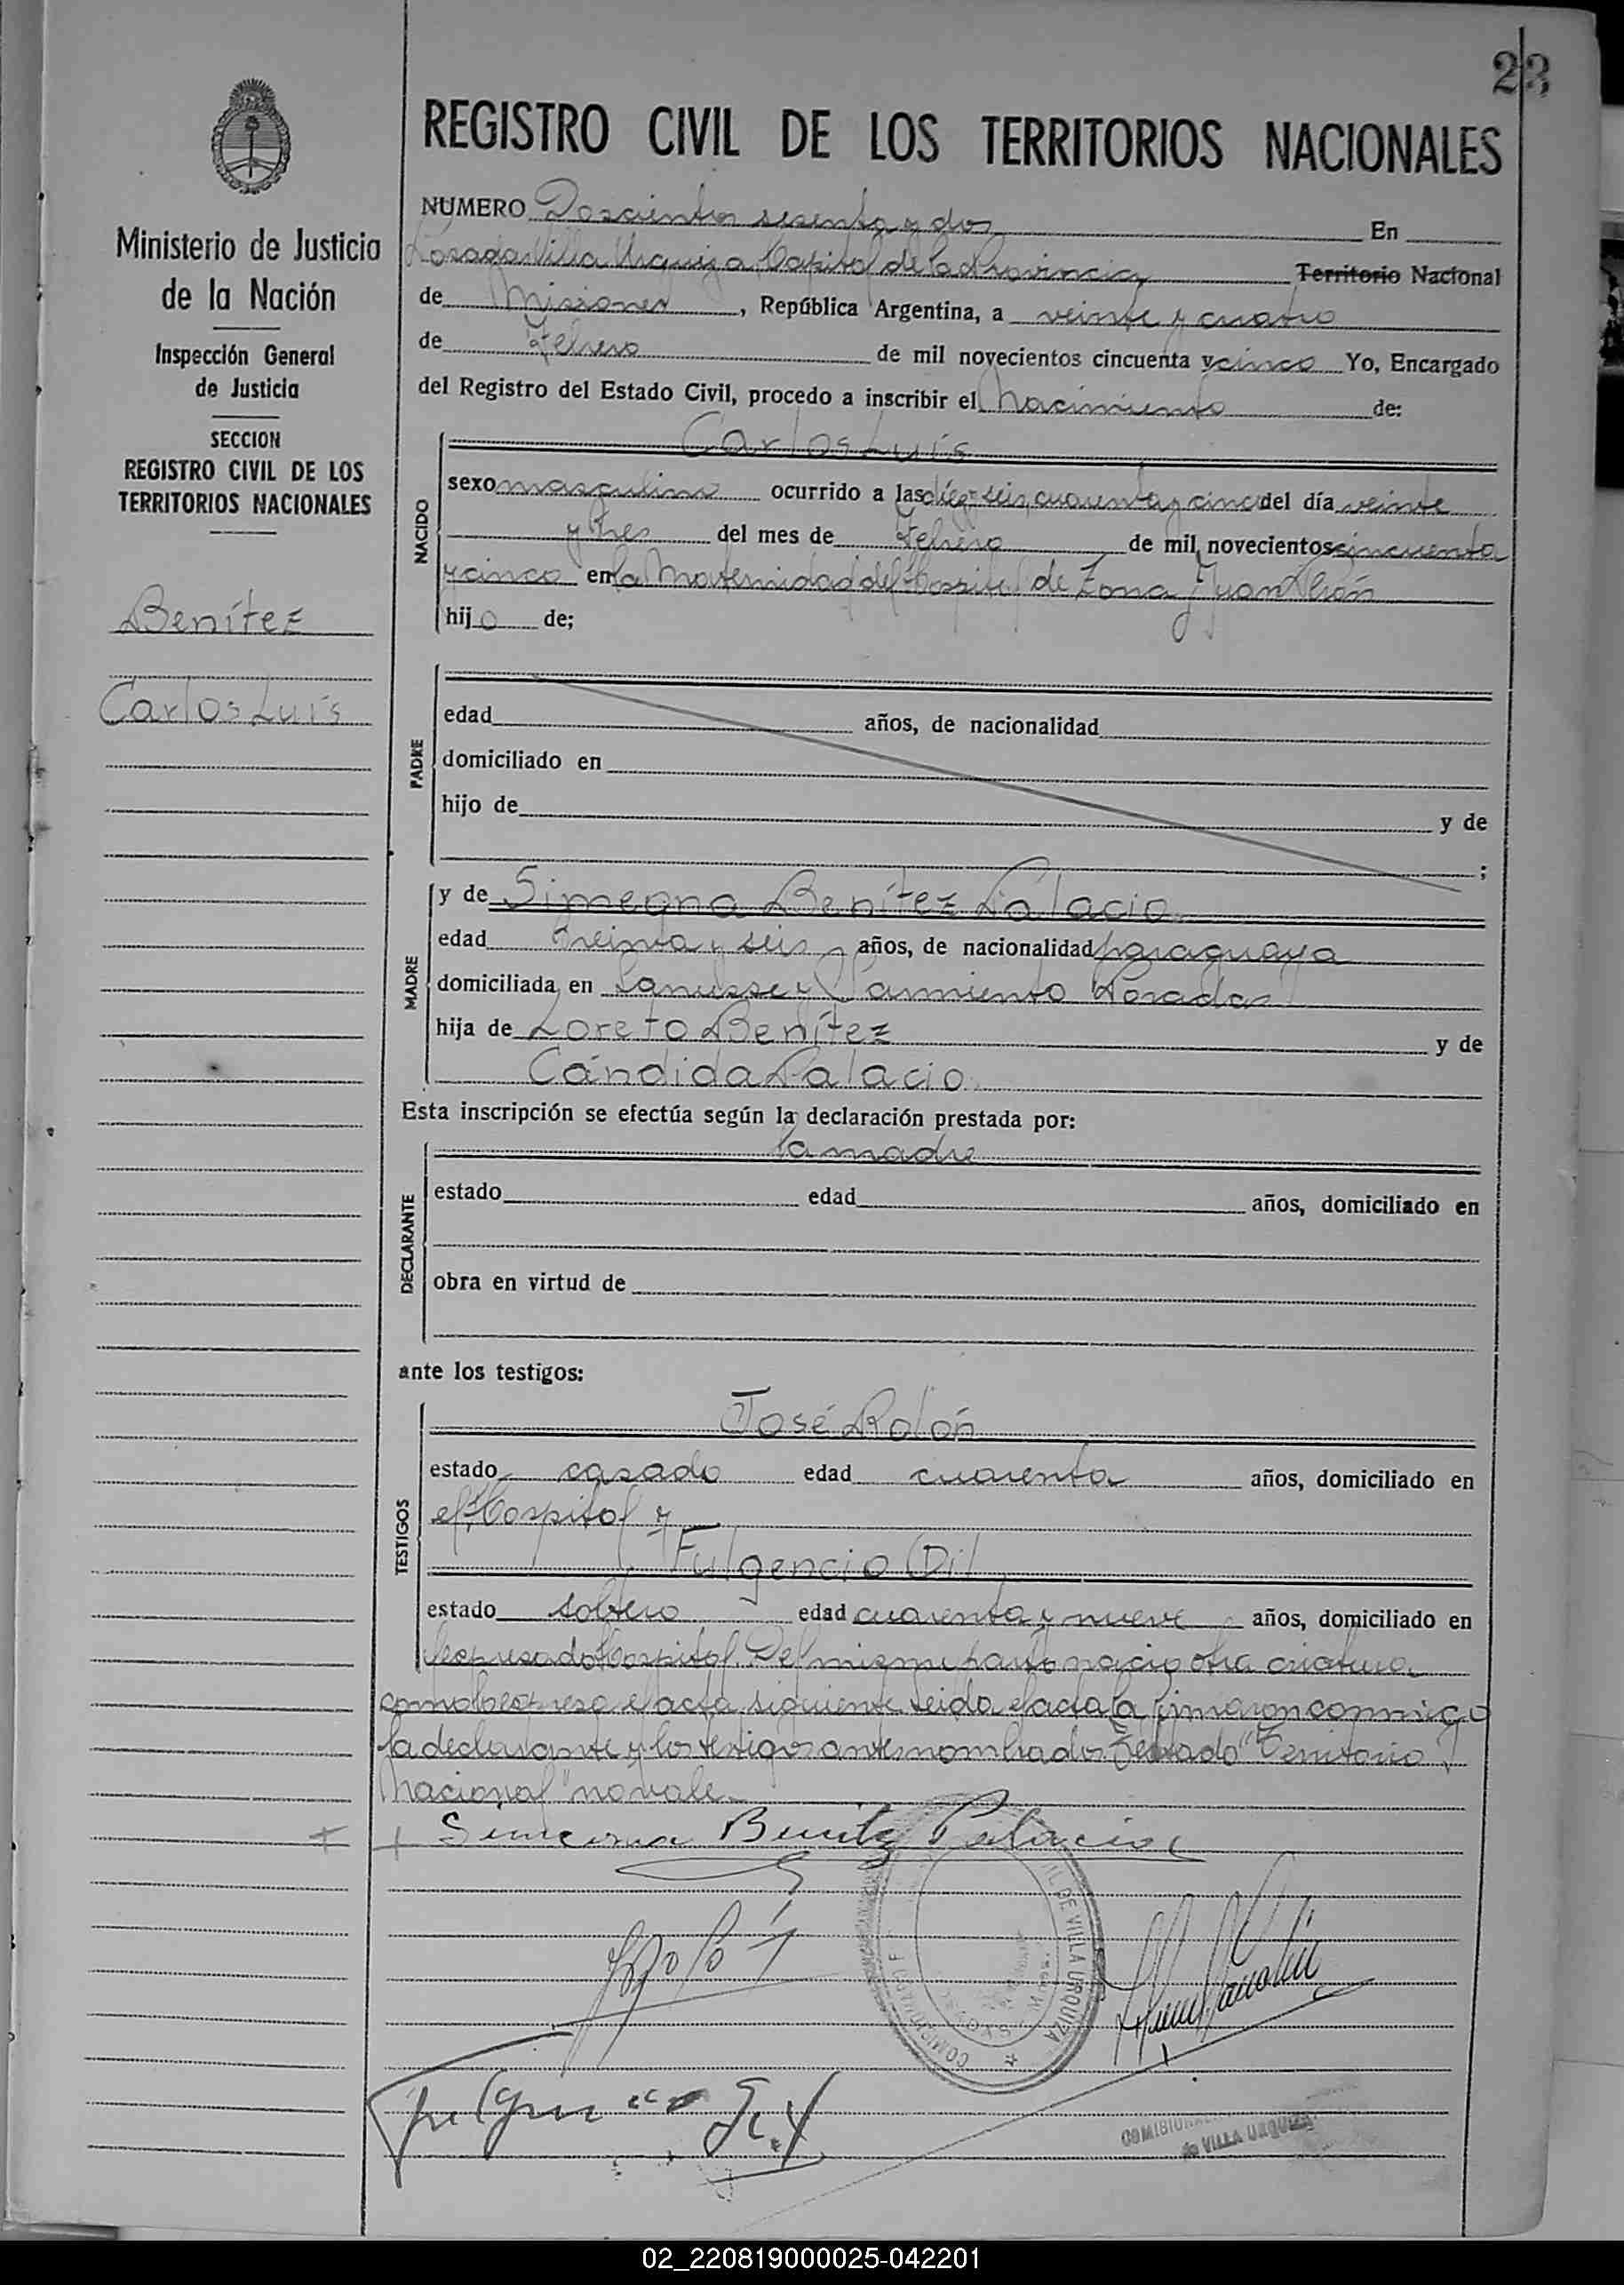 23
REGISTRO CIVIL DE LOS TERRITORIOS NACIONALES
Ministerio de Justicia
de la Nación
Inspección General
de Justicia
SECCION
REGISTRO CIVIL DE LOS
TERRITORIOS NACIONALES
Benítez
Carlos Luis
NUMERO Doscientos sesenta y dos En
Posadas Villa Urquiza Capital de la Provincia Territorio Nacional
de Misiones, República Argentina, a veinte y cuatro
de Febrero de mil novecientos cincuenta y cinco Yo, Encargado
del Registro del Estado Civil, procedo a inscribir el Nacimiento de:
NACIDO
Carlos Luis
sexo masculino ocurrido a las diez y seis, cuarenta y cinco del día veinte
y tres del mes de Febrero de mil novecientos cincuenta
y cinco en la Maternidad del Hospital de Zona Juan Perón
hijo de;
PADRE
edad años, de nacionalidad
domiciliado en
hijo de y de
;
MADRE
y de Simeona Benítez Palacio
edad treinta y seis años, de nacionalidad paraguaya
domiciliada en Lanusse y Sarmiento Posadas
hija de Loreto Benítez y de
Cándida Palacio.
Esta inscripción se efectúa según la declaración prestada por:
DECLARANTE
la madre
estado edad años, domiciliado en
obra en virtud de
ante los testigos:
TESTIGOS
José Rolón
estado casado edad cuarenta años, domiciliado en
el Hospital y
Fulgencio Gil
estado soltero edad cuarenta y nueve años, domiciliado en
el expresado Hospital. Del mismo parto nacio otra criatura
como lo expresa el acta siguiente. Leida el acta la firmaron conmigo
la declarante y los testigos antes nombrados. Testado "Territorio
Nacional" no vale.
Simeona Benitez Palacios
VILLA URQUIZA
de VILLA URQUIZA
02_220819000025-042201